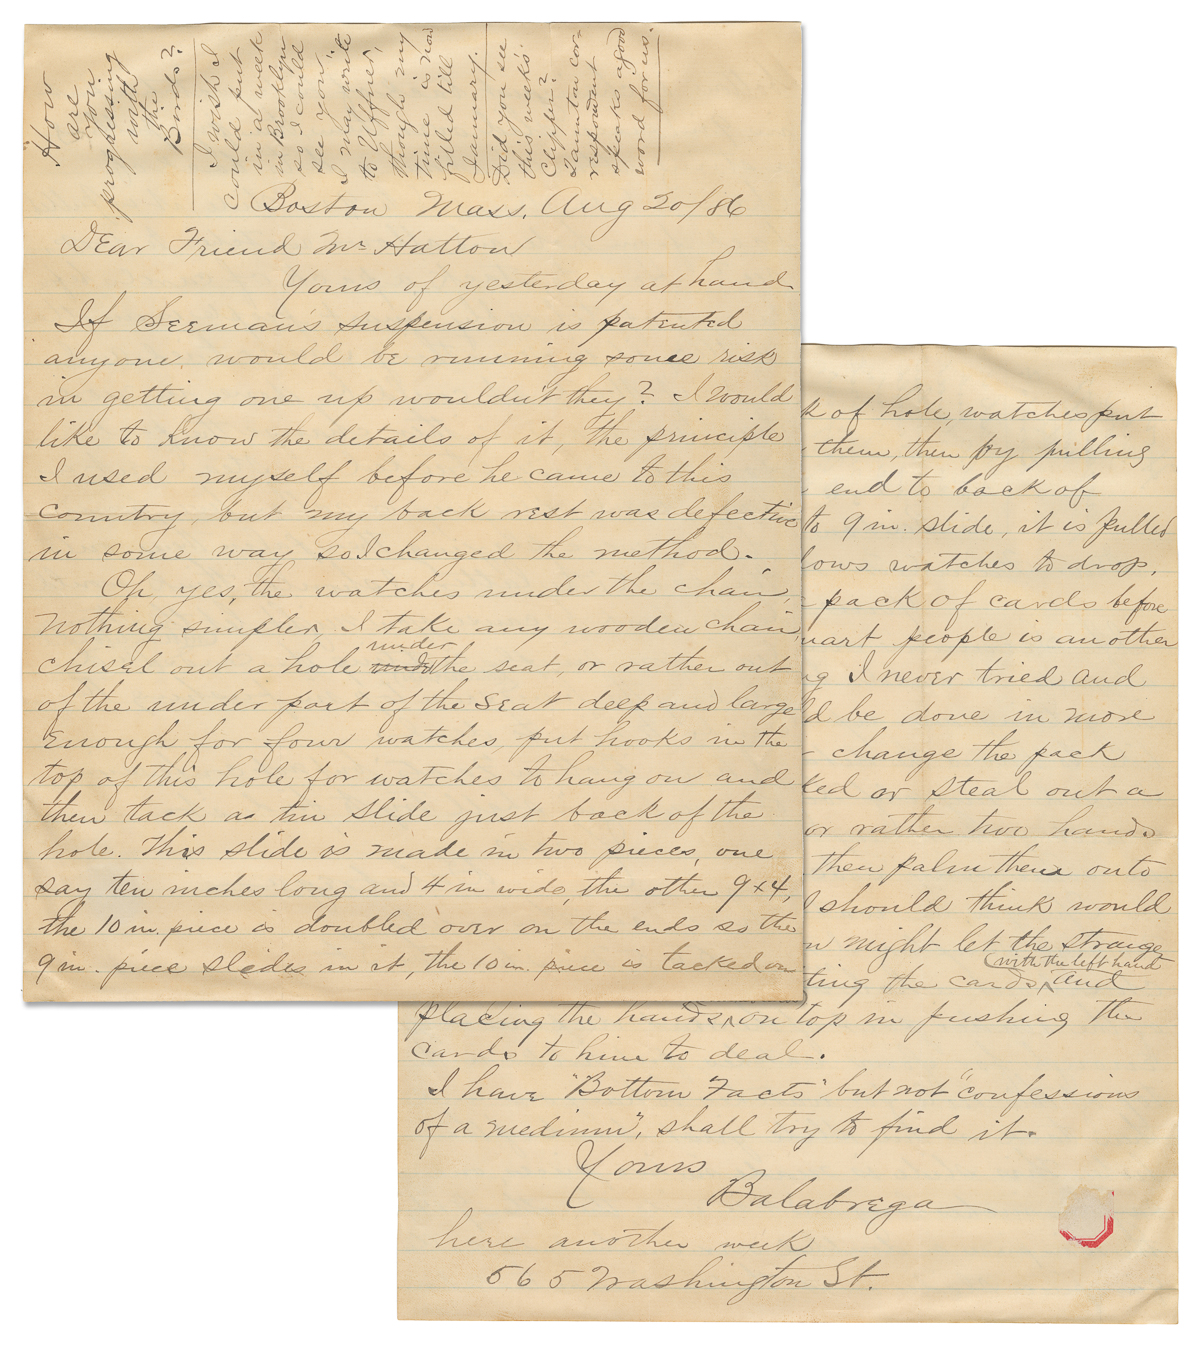 How
are
You
progressing
with
the
Birds?
I wish I
could put
in a week
in Brooklyn
so I could
see you.
I may write
to Uffner,
though my
time is now
filled till
January.
Did you see
this week's
Clipper?
Taunton cor-
respondent
speaks a good
word for us.
Boston Mass. Aug 20/86
Dear Friend Mr Hatton
Yours of yesterday at hand.
If Seeman's suspension is patented
anyone would be running some risk
in getting one up wouldn't they? I would
like to know the details of it, the principle
I used myself before he came to this
country, but my back rest was defective
in some way so I changed the method.
Oh, yes, the watches under the chair,
Nothing simpler, I take any wooden chair
chisel out a hole under the seat, or rather out
of the under part of the seat deep and large
enough for four watches, put hooks in the
top of this hole for watches to hang on and
then tack a tin slide just back of the
hole. This slide is made in two pieces, one
say ten inches long and 4 in wide, the other 9x4,
the 10 in. piece is doubled over on the ends so the
9 in. piece slides in it, the 10 in. piece is tacked on
k of hole, watches put
them, then by pulling
end to back of
to 9 in. slide, it is pulled
lows watches to drop.
pack of cards before
mart people is another
g I never tried and
d be done in more
change the pack
ked or steal out a
or rather two hands
then palm them onto
I should think would
n might let the strange
ting the cards (with the left hand and
placing the hands on top in pushing the
cards to him to deal.
I have "Bottom Facts" but not "confessions
of a medium", shall try to find it.
Yours
Balabrega
here another week
565 Washington St.